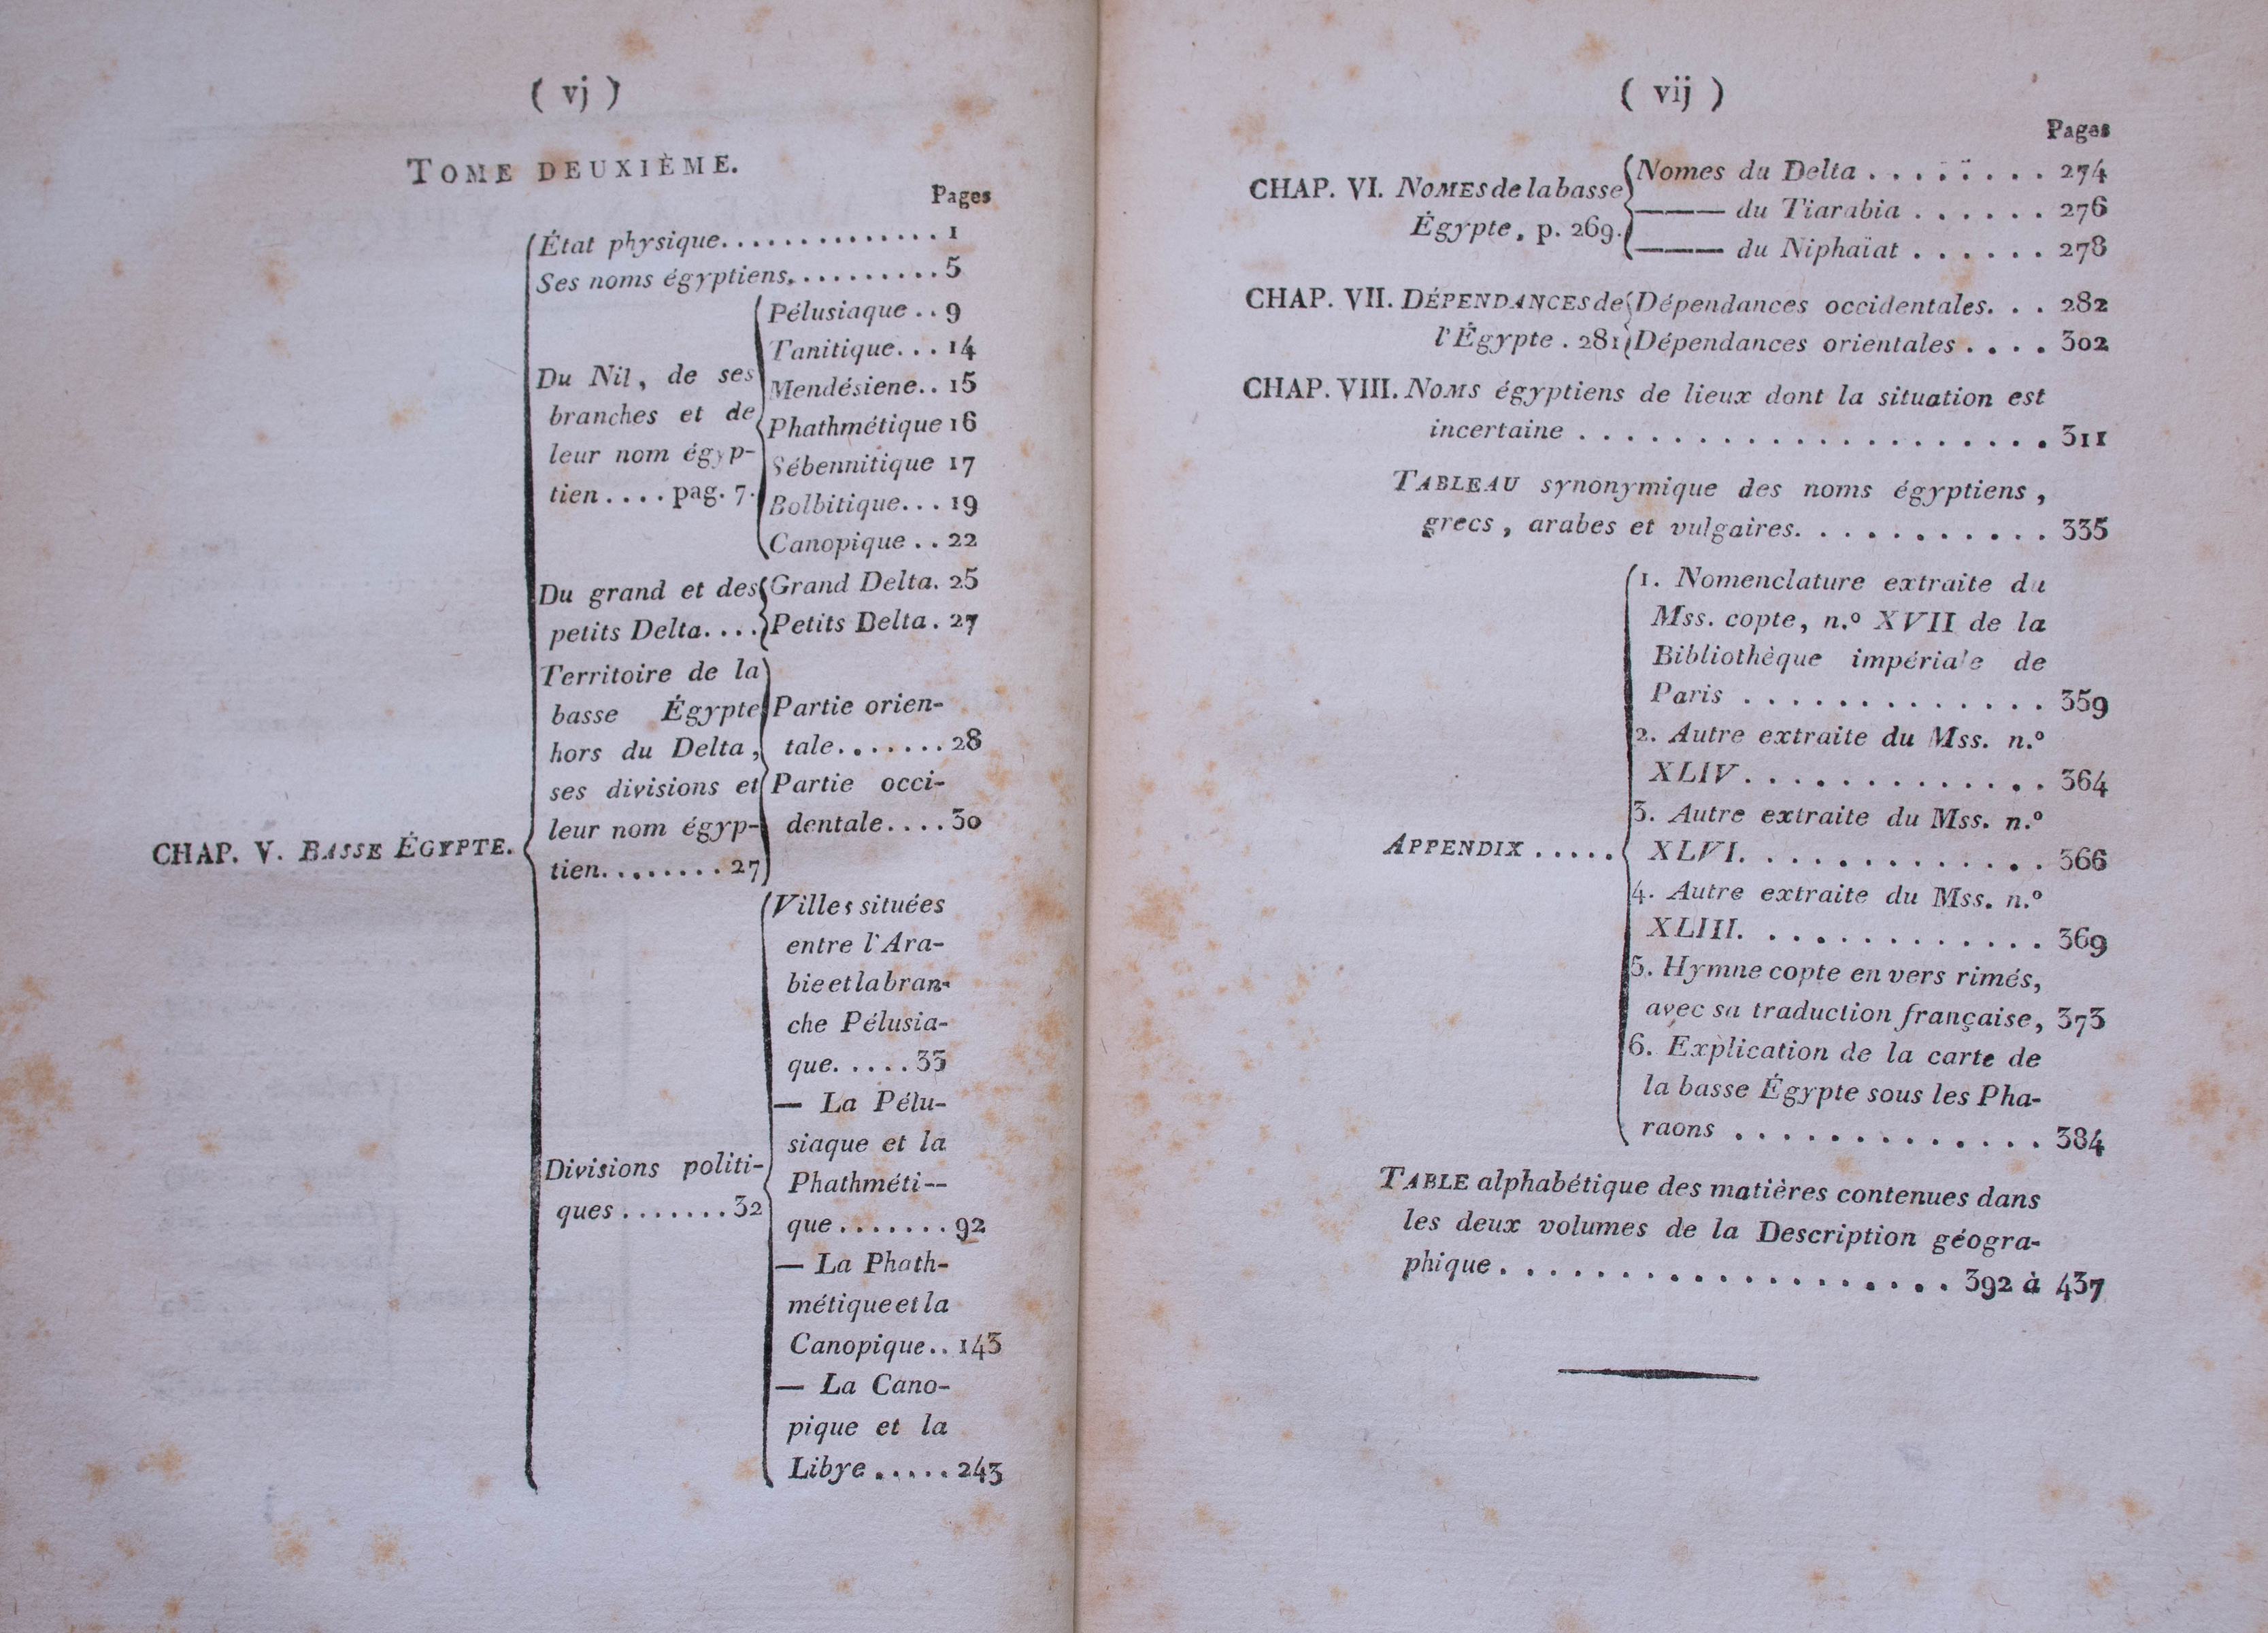 ( vj )
TOME DEUXIÈME.
Pages
État physique.............. 1
Ses noms égyptiens.......... 5
Du Nil, de ses
branches et de
leur nom égyp-
tien.... pag. 7.
Pélusiaque .. 9
Tanitique... 14
Mendésiene.. 15
Phathmétique 16
Sébennitique 17
Bolbitique... 19
Canopique .. 22
Du grand et des
petits Delta....
Grand Delta. 25
Petits Delta. 27
Territoire de la
basse Égypte
hors du Delta,
ses divisions et
leur nom égyp-
tien........ 27
Partie orien-
tale....... 28
Partie occi-
dentale.... 30
CHAP. V. BASSE ÉGYPTE.
Divisions politi-
ques ....... 32
Villes situées
entre l'Ara-
bie et la bran-
che Pélusia-
que. .... 33
— La Pélu-
siaque et la
Phathméti--
que ....... 92
— La Phath-
métique et la
Canopique.. 143
— La Cano-
pique et la
Libye ..... 243
( vij )
Pages
CHAP. VI. NOMES de la basse
Égypte, p. 269.
Nomes du Delta ........ 274
——— du Tiarabia ...... 276
——— du Niphaïat ...... 278
CHAP. VII. DÉPENDANCES de
l'Égypte . 281
Dépendances occidentales. . . 282
Dépendances orientales .... 302
CHAP. VIII. NOMS égyptiens de lieux dont la situation est
incertaine .................... 311
TABLEAU synonymique des noms égyptiens,
grecs, arabes et vulgaires. ........... 335
APPENDIX .....
1. Nomenclature extraite du
Mss. copte, n.º XVII de la
Bibliothèque impériale de
Paris ............. 359
2. Autre extraite du Mss. n.º
XLIV ............. 364
3. Autre extraite du Mss. n.º
XLVI. ............ 366
4. Autre extraite du Mss. n.º
XLIII. ............ 369
5. Hymne copte en vers rimés,
avec sa traduction française, 373
6. Explication de la carte de
la basse Égypte sous les Pha-
raons ............. 384
TABLE alphabétique des matières contenues dans
les deux volumes de la Description géogra-
phique ................... 392 à 437